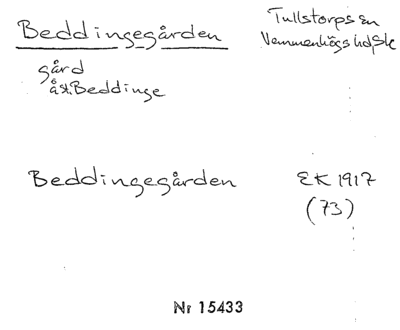 Beddingegården
Tullstorps sn
Vemmenhögs hd Sk
gård
å st. Beddinge
Beddingegården
EK 1917
(73)
Nr 15433